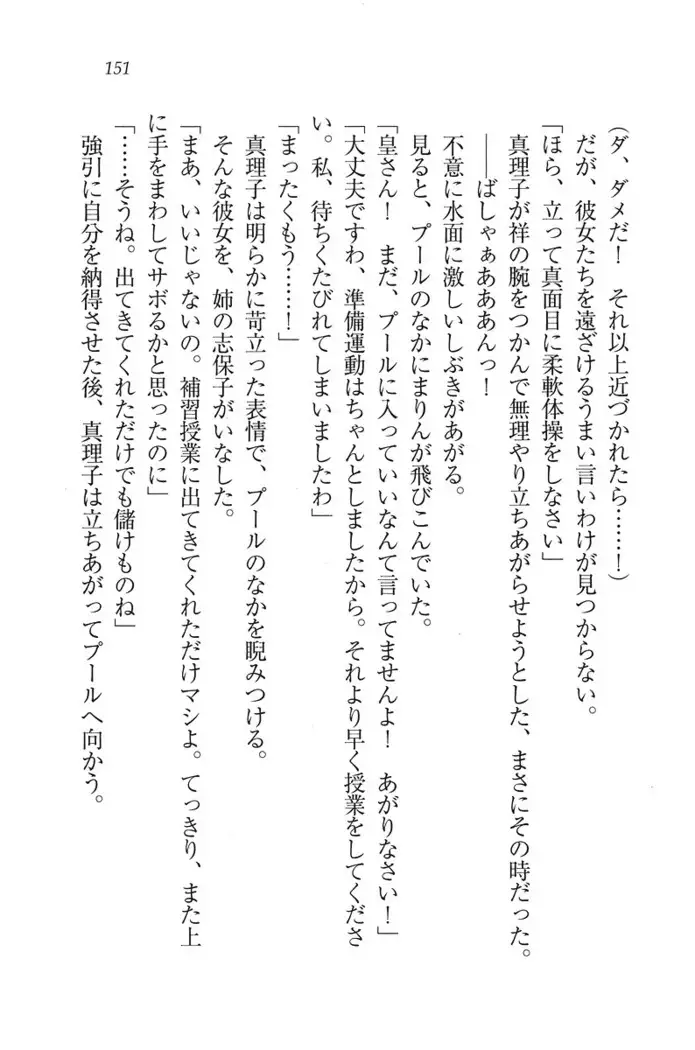 151
（ダ、ダメだ！　それ以上近づかれたら……！）
だが、彼女たちを遠ざけるうまい言いわけが見つからない。
「ほら、立って真面目に柔軟体操をしなさい」
真理子が祥の腕をつかんで無理やり立ちあがらせようとした、まさにその時だった。
――ばしゃぁあああんっ！
不意に水面に激しいしぶきがあがる。
見ると、プールのなかにまりんが飛びこんでいた。
「皇さん！　まだ、プールに入っていいなんて言ってませんよ！　あがりなさい！」
「大丈夫ですわ、準備運動はちゃんとしましたから。それより早く授業をしてくださ
い。私、待ちくたびれてしまいましたわ」
「まったくもう……！」
真理子は明らかに苛立った表情で、プールのなかを睨みつける。
そんな彼女を、姉の志保子がいなした。
「まあ、いいじゃないの。補習授業に出てきてくれただけマシよ。てっきり、また上
に手をまわしてサボるかと思ったのに」
「……そうね。出てきてくれただけでも儲けものね」
強引に自分を納得させた後、真理子は立ちあがってプールへ向かう。